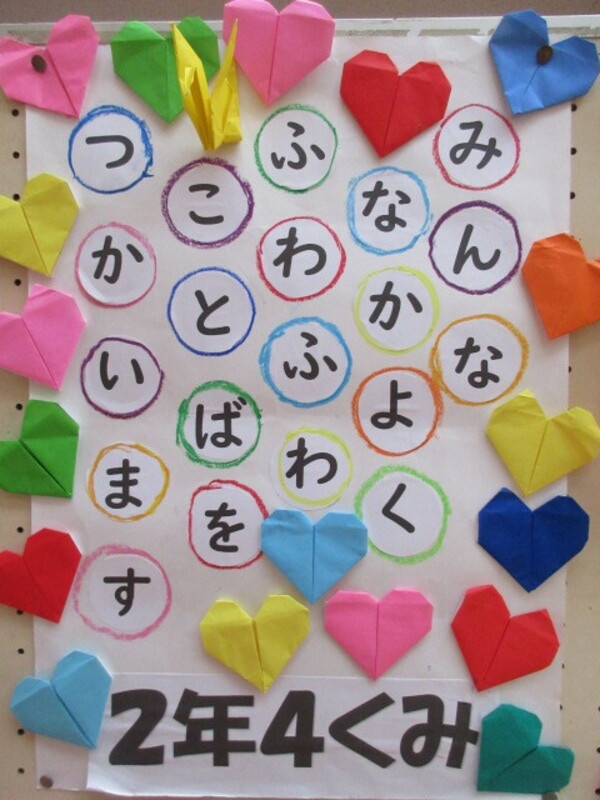 みんな
なかよく
ふわふわ
ことばを
つかいます
2年4くみ